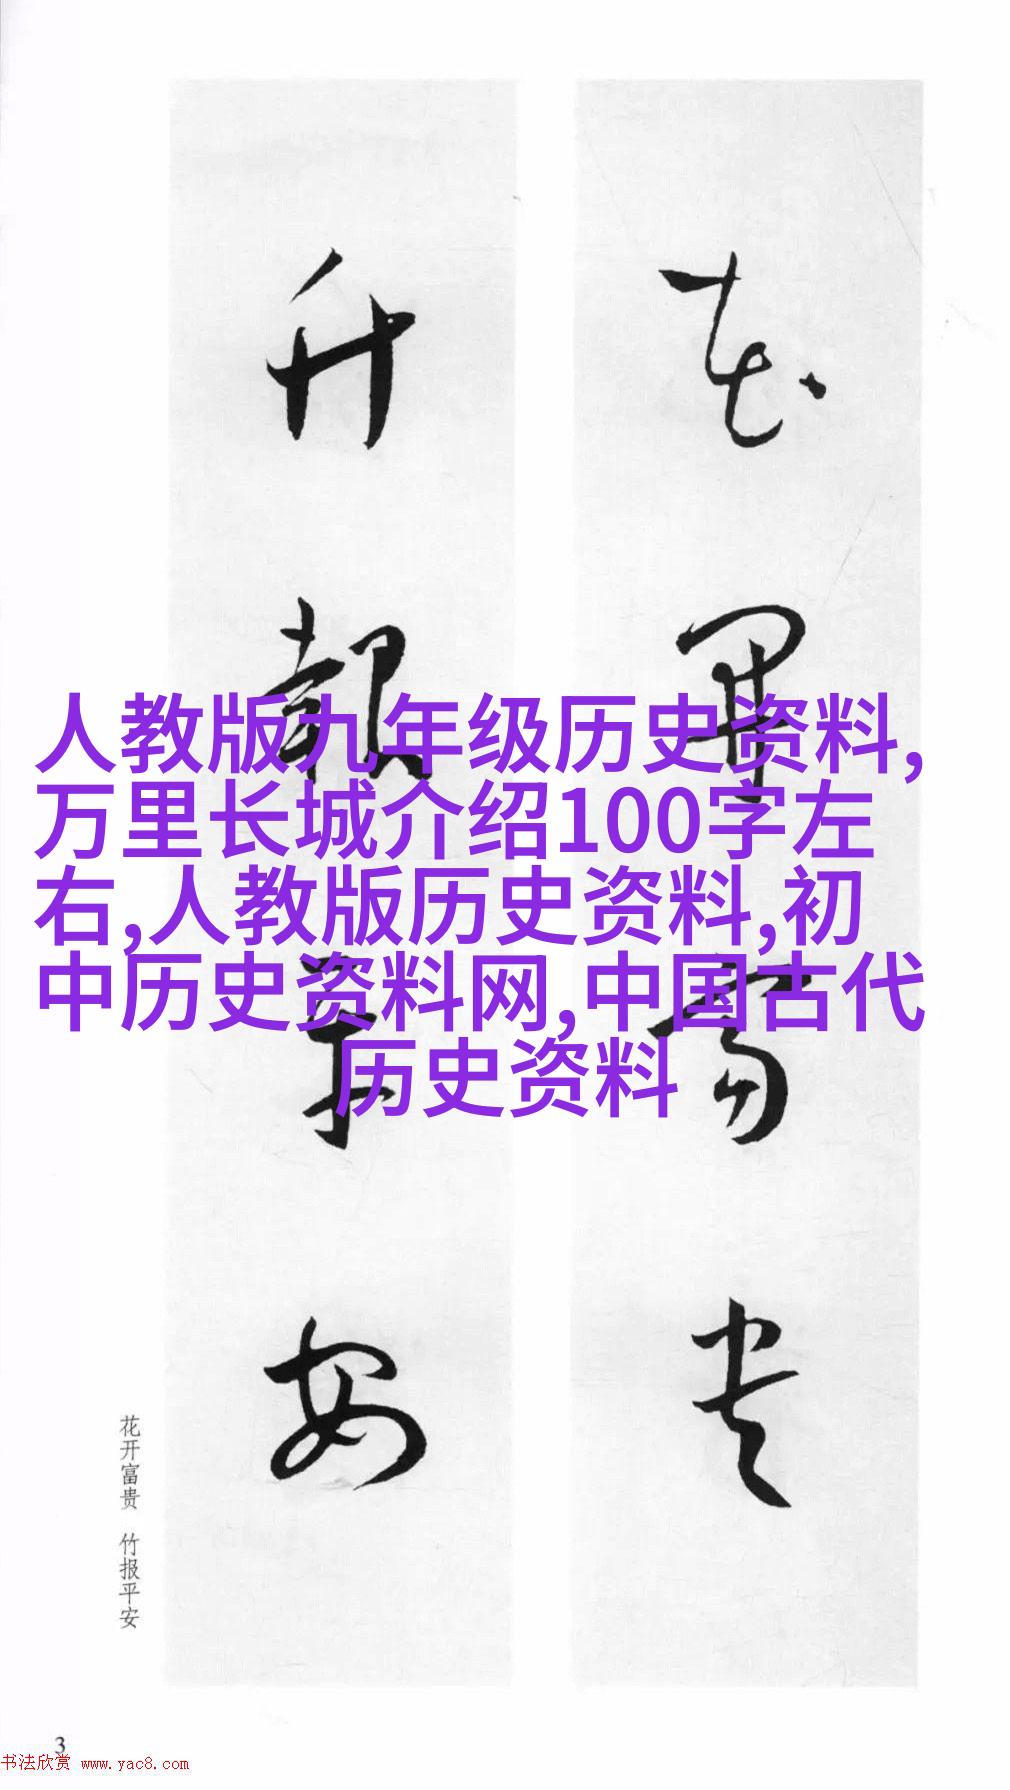 花开富贵
竹报平安
人教版九年级历史资料,
万里长城介绍100字左
右,人教版历史资料,初
中历史资料网,中国古代
历史资料
花开富贵 竹报平安
3
书法欣赏 www.yac8.com